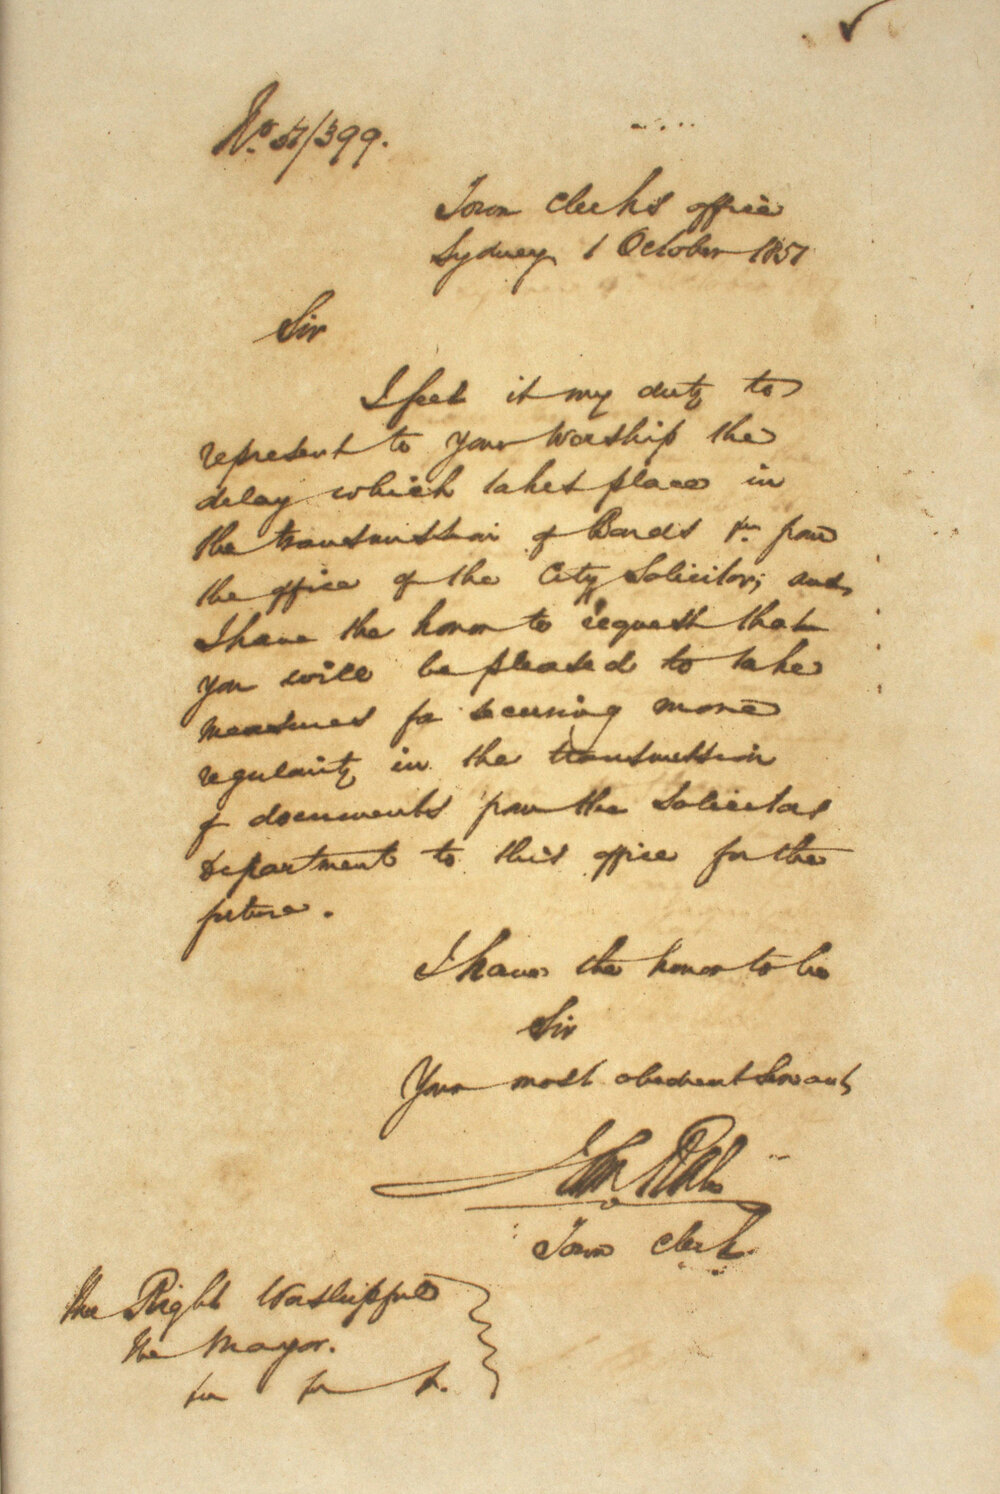 No. 57/399.
Town Clerk's office
Sydney 1 October 1857
Sir
I feel it my duty to
represent to Your Worship the
delay which takes place in
the transmission of Bonds &c. from
the office of the City Solicitor; and
I have the honor to request that
you will be pleased to take
measures for securing more
regularity in the transmission
of documents from the Solicitors
Department to this office for the
future.
I have the honor to be
Sir
Your most obedient Servant
John
Town Clerk
The Right Worshipful
the Mayor.
&c &c &c.